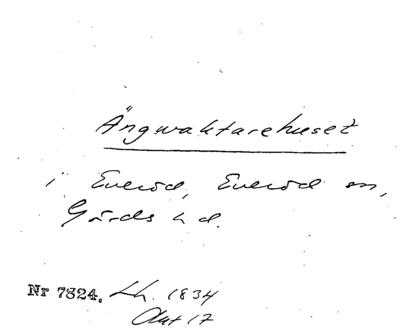 Ängwaktarehuset
i Everöd, Everöd sn,
Gärds h d.
Nr 7324. Lh. 1834
Akt 17